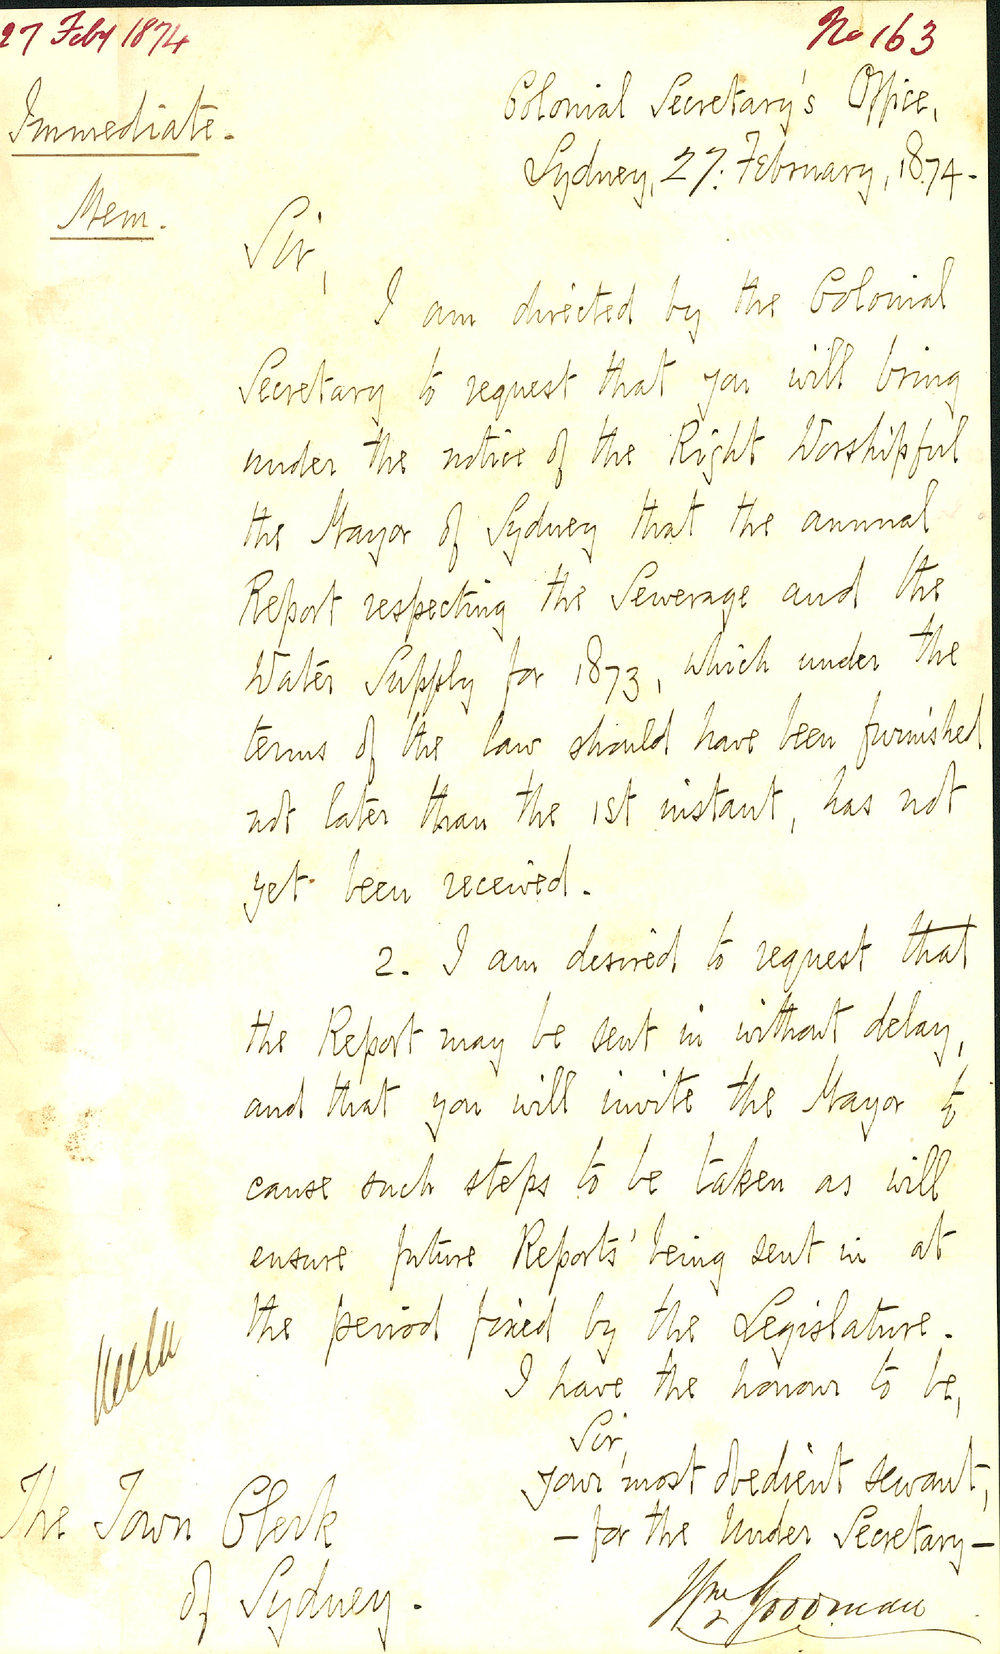 27 Feby 1874
No 163
Immediate.
Colonial Secretary's Office,
Sydney, 27. February, 1874.
Mem.
Sir,
I am directed by the Colonial
Secretary to request that you will bring
under the notice of the Right Worshipful
the Mayor of Sydney that the annual
Report respecting the Sewerage and the
Water Supply for 1873, which under the
terms of the law should have been furnished
not later than the 1st instant, has not
yet been received.
2. I am desired to request that
the Report may be sent in without delay,
and that you will invite the Mayor to
cause such steps to be taken as will
ensure future Reports' being sent in at
the period fixed by the Legislature.
I have the honour to be,
Sir,
your most obedient servant,
- for the Under Secretary -
Wm Goodman
The Town Clerk
of Sydney.